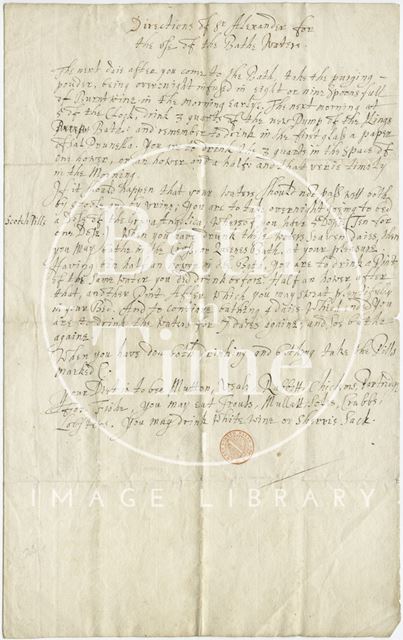 Directions of Sr Alexander for
the use of the Bath Waters.
The next daie after you come to the Bath, take the purging
powder, being overnight infused in eight or nine spoonsfull
of Burnt wine in the morning early. The next morning att
5 of the Clock, drink 3 quarts of the new Pump of the Kings
Bath: and remember to drink in the first glass a paper
of Sal Prunella. You are to drink the 3 quarts in the space of
one hower, or an hower and a halfe and that verie timely
in the Morning.
If it should happen that your Waters should not pass well both
by stool and by urine; You are to take overnight going to bed
Scotch Pills
a dose of the Angelica Pills, you have
one Dose. When you have drunk the Waters daies, then
you may bathe in the or Queens Bath at your pleasure.
Having half an in the Bath you are to drink a Pint
of the same water you did drink before. Half an hower after
that, another Pint. After which you may sweat plentifully
in your Bed. And so continue bathing daies. When You
are to drink the waters for daies againe, and so bathe
againe
When you have done both drinking and bathing take the Pills
marked C.
Your Diet is to be Mutton, Veale, Rabbitt, Chickens, Partridg,
for Fishe, you may eat Trouts, Mullett, Soles, Crabbs,
Lobsters. You may drink White Wine or Sherris Sack.
Bath
in
Time
IMAGE LIBRARY